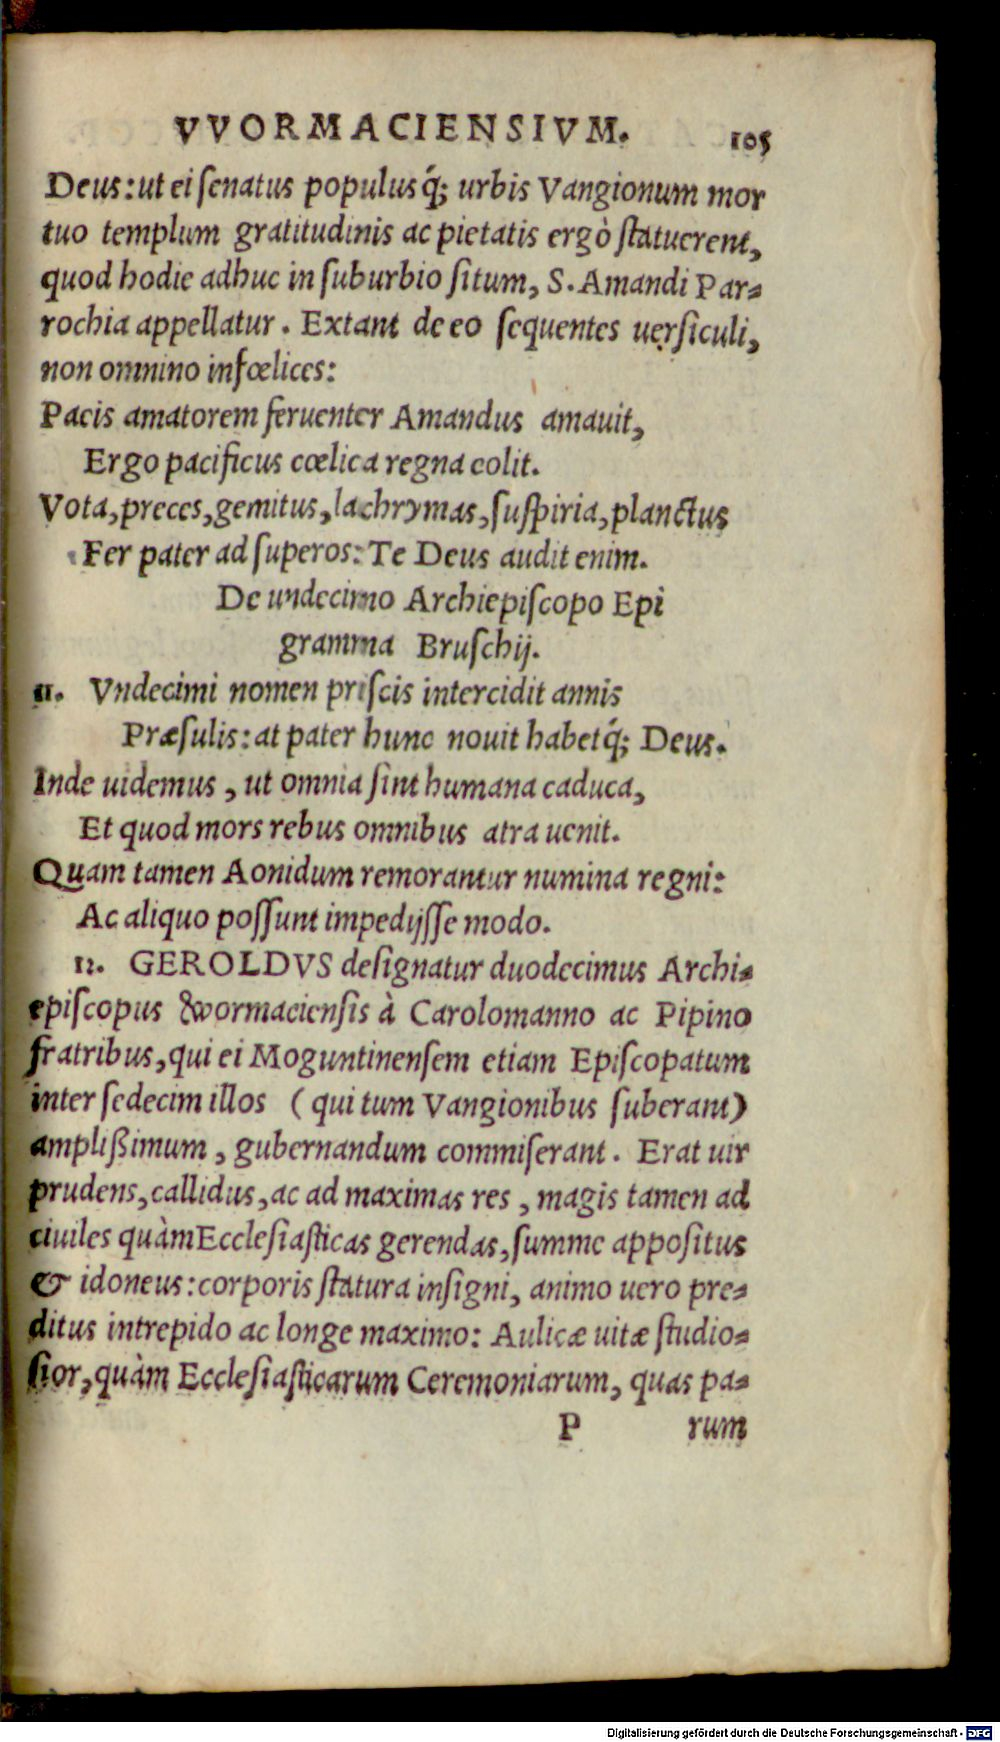 VVORMACIENSIVM. 105
Deus: ut ei senatus populusq́; urbis Vangionum mor
tuo templum gratitudinis ac pietatis ergò statuerent,
quod hodie adhuc in suburbio situm, S. Amandi Par=
rochia appellatur. Extant de eo sequentes uersiculi,
non omnino infœlices:
Pacis amatorem feruenter Amandus amauit,
Ergo pacificus cœlica regna colit.
Vota, preces, gemitus, lachrymas, suspiria, planctus
Fer pater ad superos: Te Deus audit enim.
De undecimo Archiepiscopo Epi
gramma Bruschij.
11. Vndecimi nomen priscis intercidit annis
Præsulis: at pater hunc nouit habetq́; Deus.
Inde uidemus, ut omnia sint humana caduca,
Et quod mors rebus omnibus atra uenit.
Quam tamen Aonidum remorantur numina regni:
Ac aliquo possunt impedijsse modo.
12. GEROLDVS designatur duodecimus Archi=
episcopus Wormaciensis à Carolomanno ac Pipino
fratribus, qui ei Moguntinensem etiam Episcopatum
inter sedecim illos (qui tum Vangionibus suberant)
amplißimum, gubernandum commiserant. Erat uir
prudens, callidus, ac ad maximas res, magis tamen ad
ciuiles quàm Ecclesiasticas gerendas, summe appositus
& idoneus: corporis statura insigni, animo uero pre=
ditus intrepido ac longe maximo: Aulicæ uitæ studio=
sior, quàm Ecclesiasticarum Ceremoniarum, quas pa=
P rum
Digitalisierung gefördert durch die Deutsche Forschungsgemeinschaft - DFG